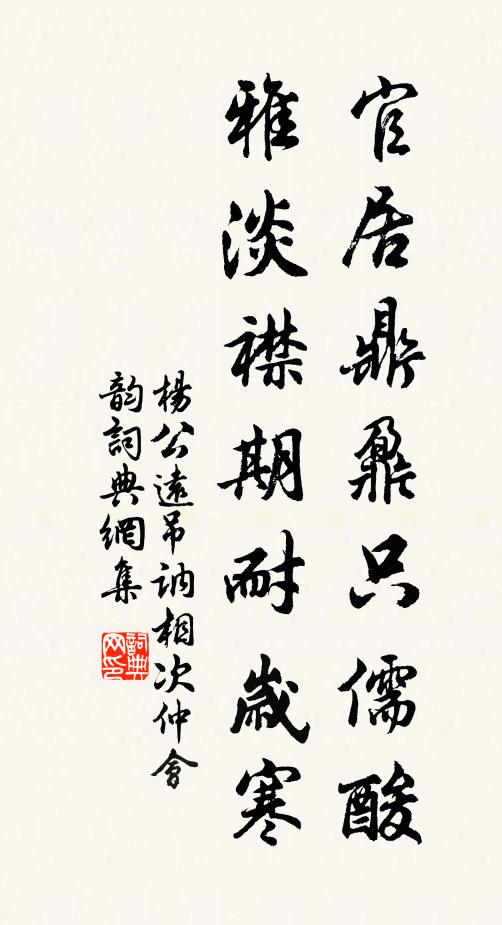 官居鼎鼐只儒酸
雅淡襟期耐歲寒
楊公遠吊訥相次仲會
韵詞典網集
詞典网印